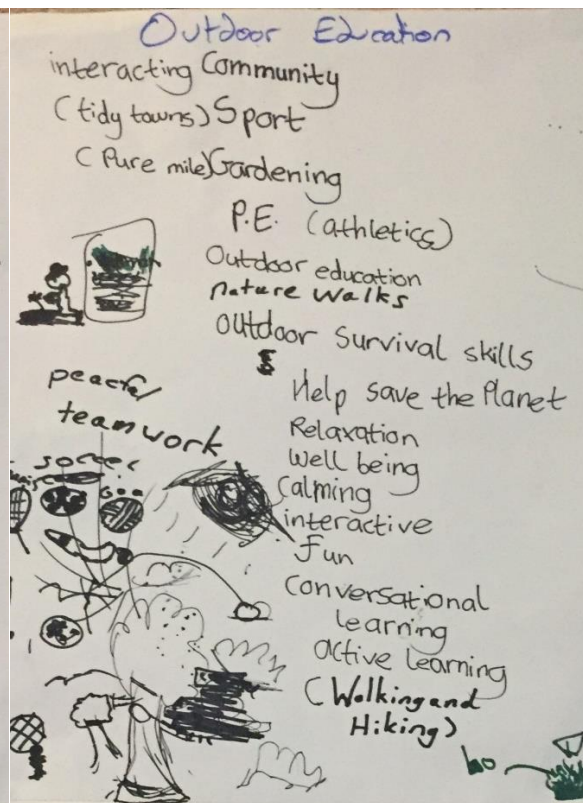 Outdoor Education
interacting Community
(tidy towns) Sport
(Pure mile) Gardening
P.E. (athletics)
Outdoor education
nature walks
Outdoor survival skills
Help save the Planet
Relaxation
Well being
Calming
interactive
Fun
Conversational
learning
active learning
(Walking and
Hiking)
peaceful
teamwork
soccer